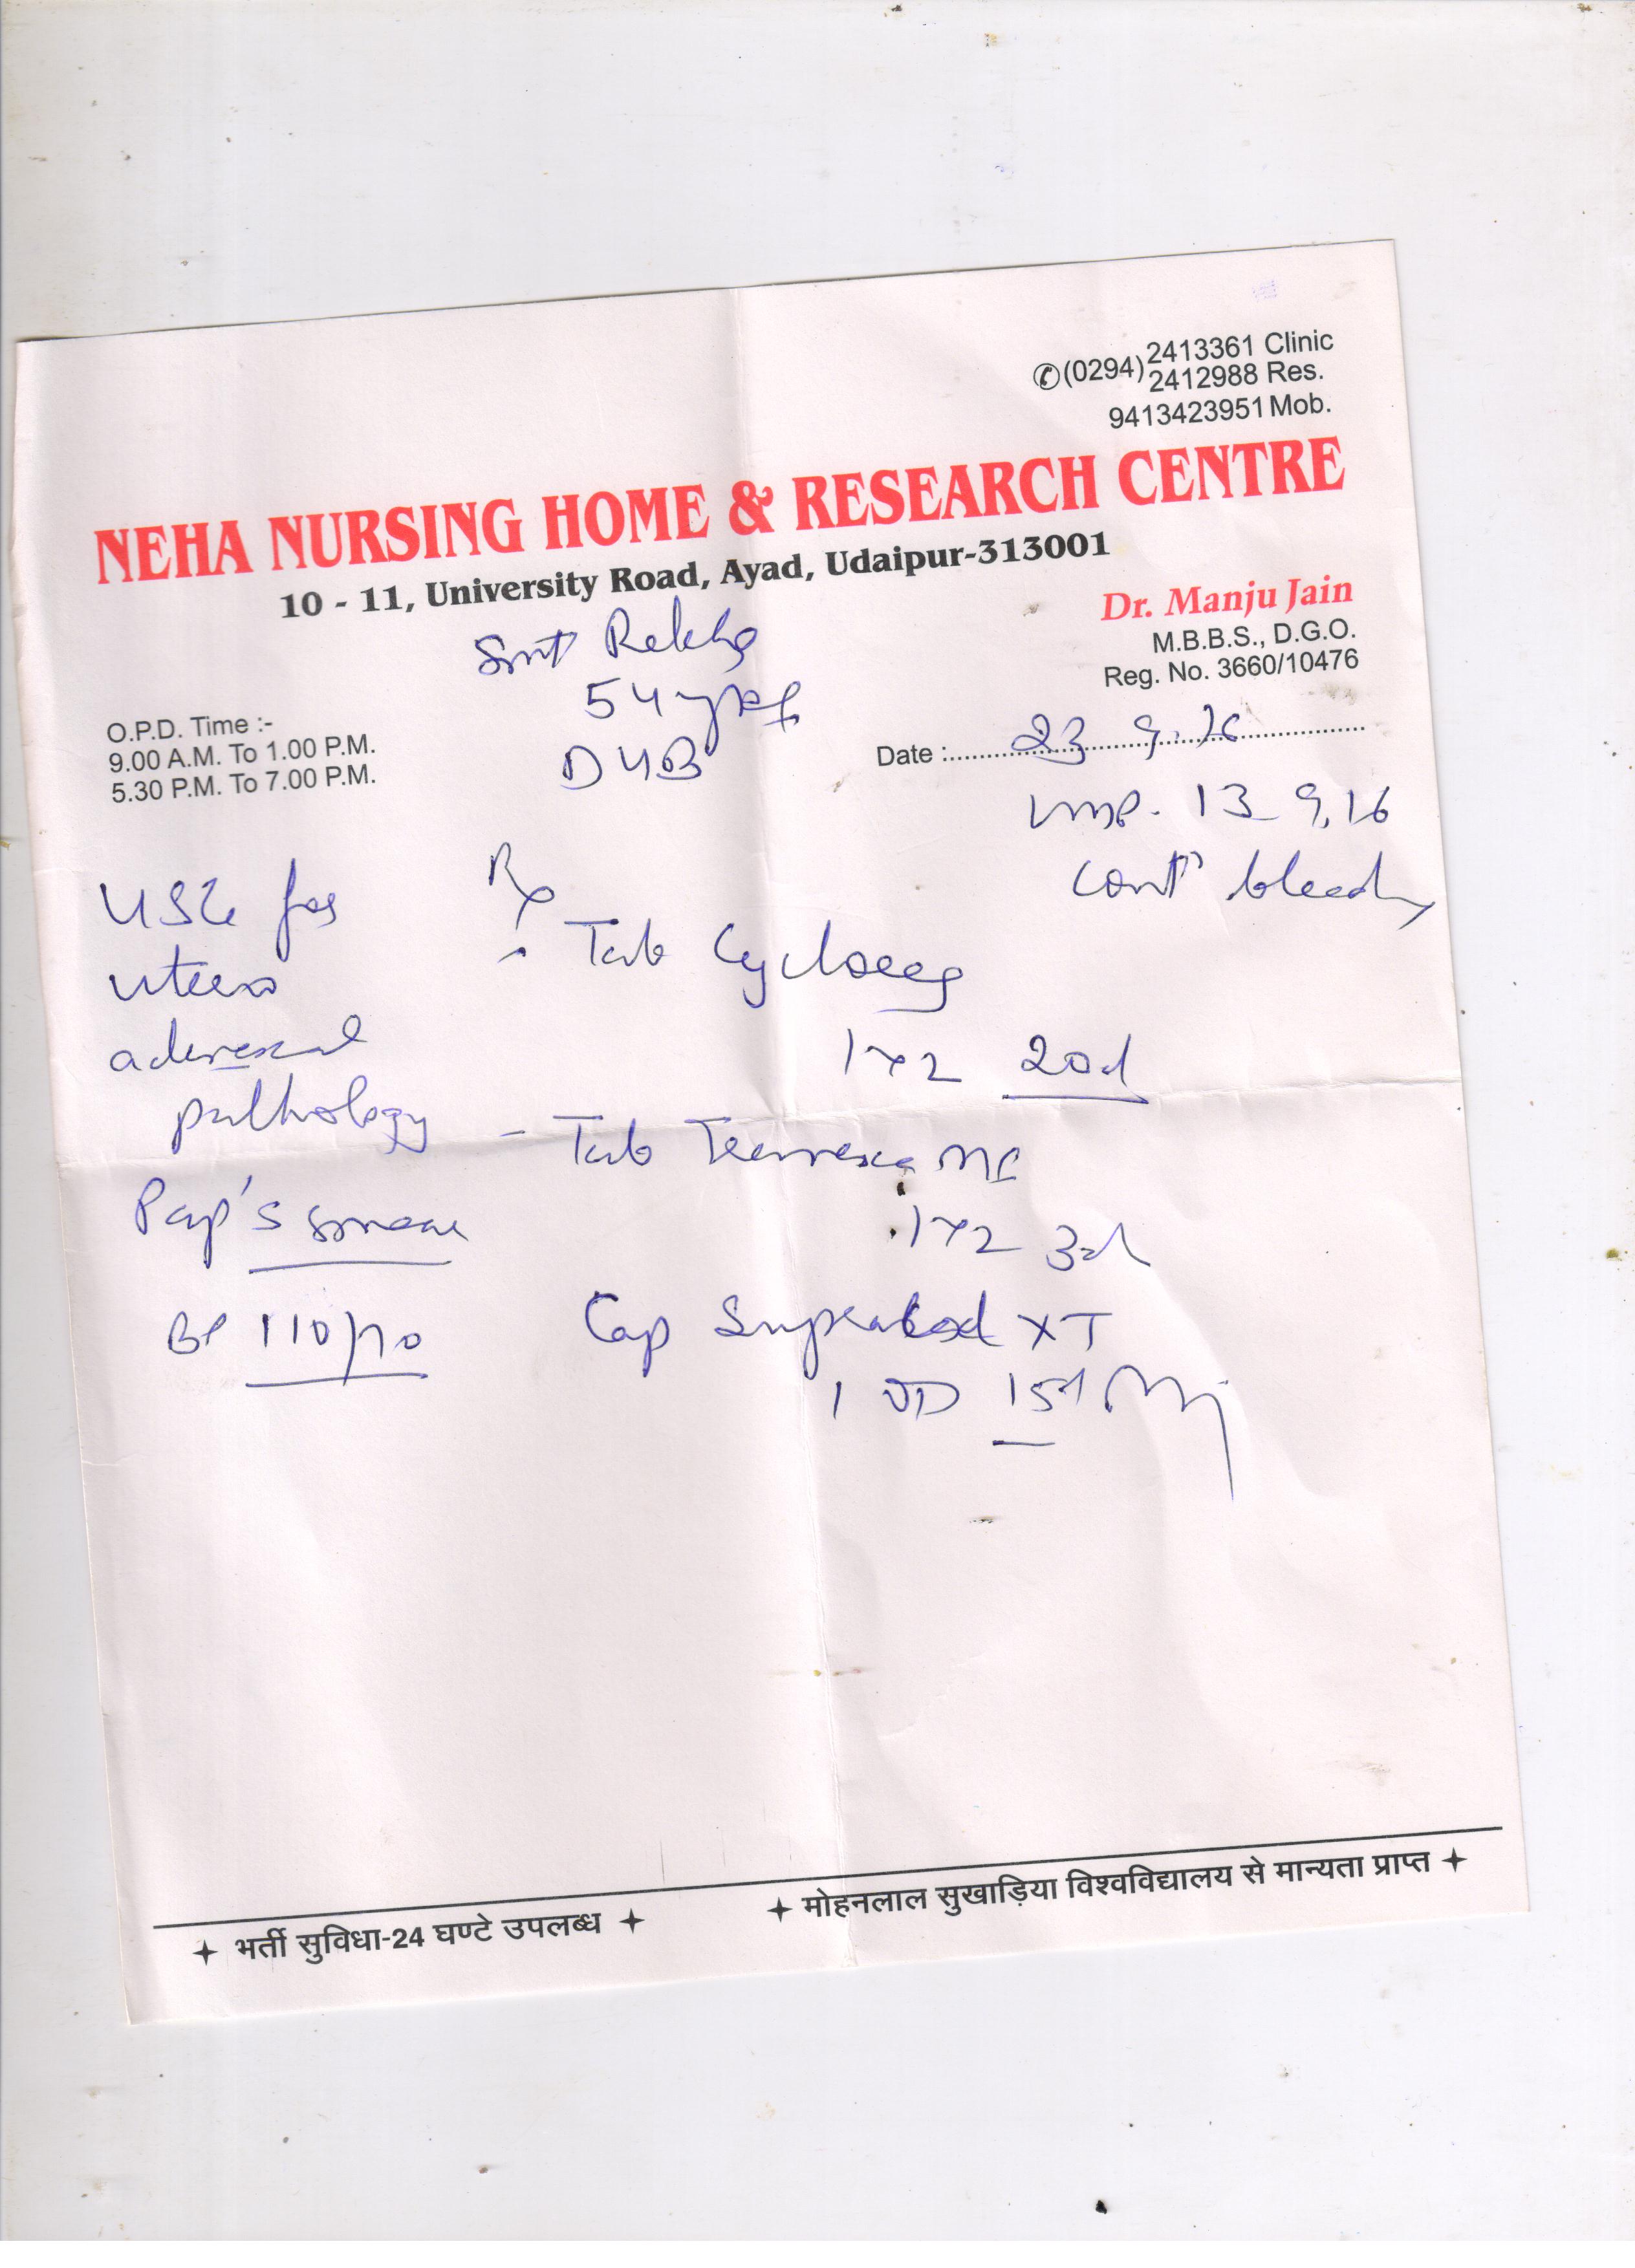 2413361 Clinic
✆(0294) 2412988 Res.
9413423951 Mob.
NEHA NURSING HOME & RESEARCH CENTRE
10 - 11, University Road, Ayad, Udaipur-313001
Dr. Manju Jain
M.B.B.S., D.G.O.
Reg. No. 3660/10476
Smt Rekha
54 yrs
DUB
O.P.D. Time :-
9.00 A.M. To 1.00 P.M.
5.30 P.M. To 7.00 P.M.
Date : 23 9.16
LMP. 13 9.16
Cont bleeding
USG for
uterus
adenexal
pathology
Pap's smear
BP 110/70
Rx
Tab
1x2 20d
- Tab MF
1x2 3d
Cap XT
1 OD 15d
✦ भर्ती सुविधा-24 घण्टे उपलब्ध ✦
✦ मोहनलाल सुखाड़िया विश्वविद्यालय से मान्यता प्राप्त ✦